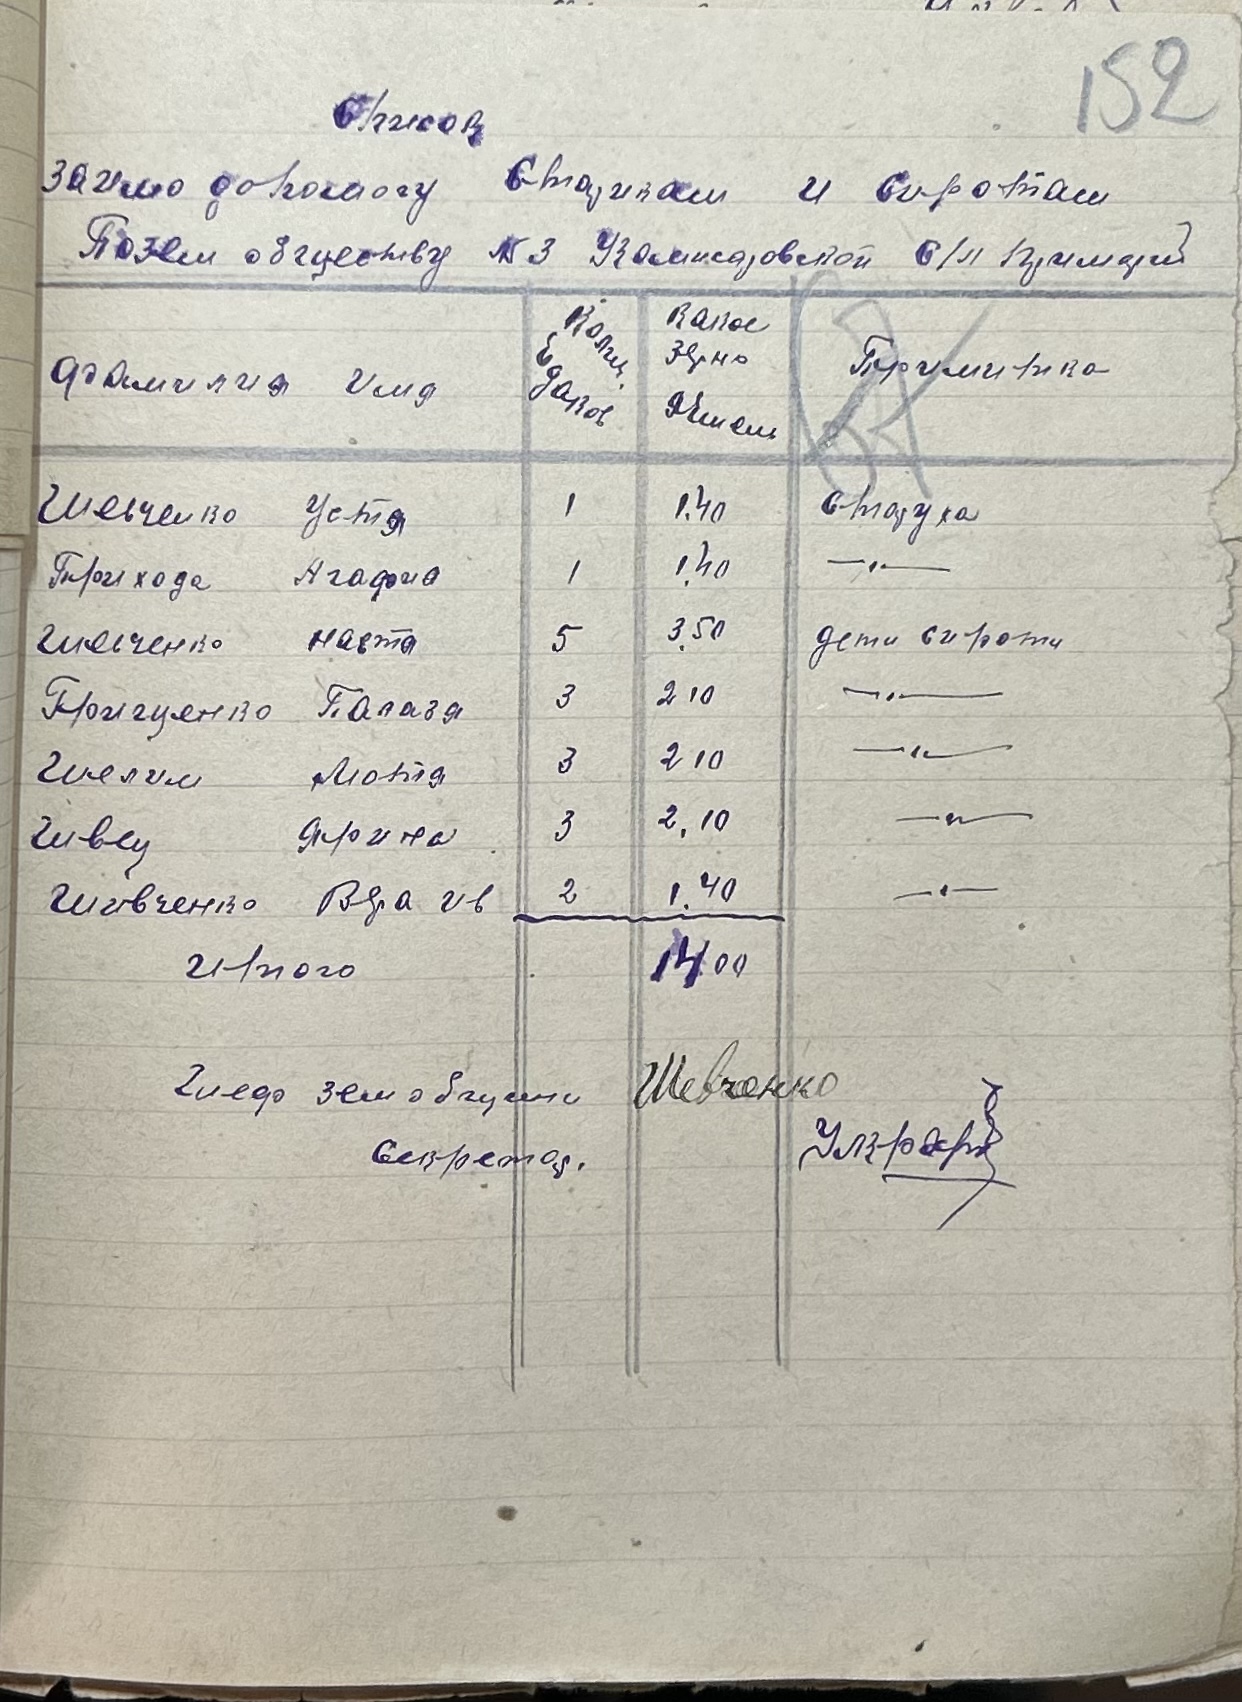 152
Список
Заимо допомогу Старикам и Сиротам
По зем обществу № 3 Комисаровской С/П
Фамилия Имя
Колич. Едаков
Какое Зерно Ячмень
Примитка
Шевченко Устя 1 1.40 старуха
Прихода Агафия 1 1.40 —„—
Шевченко Настя 5 3.50 дети сироти
Грищенко Палазя 3 2 10 —„—
Шелим Мотя 3 2 10 —„—
Швец Ярина 3 2.10 —„—
Шивченко Вера Ив 2 1.40 —„—
Итого 14 00
зем общини Шевченко
Секретар.